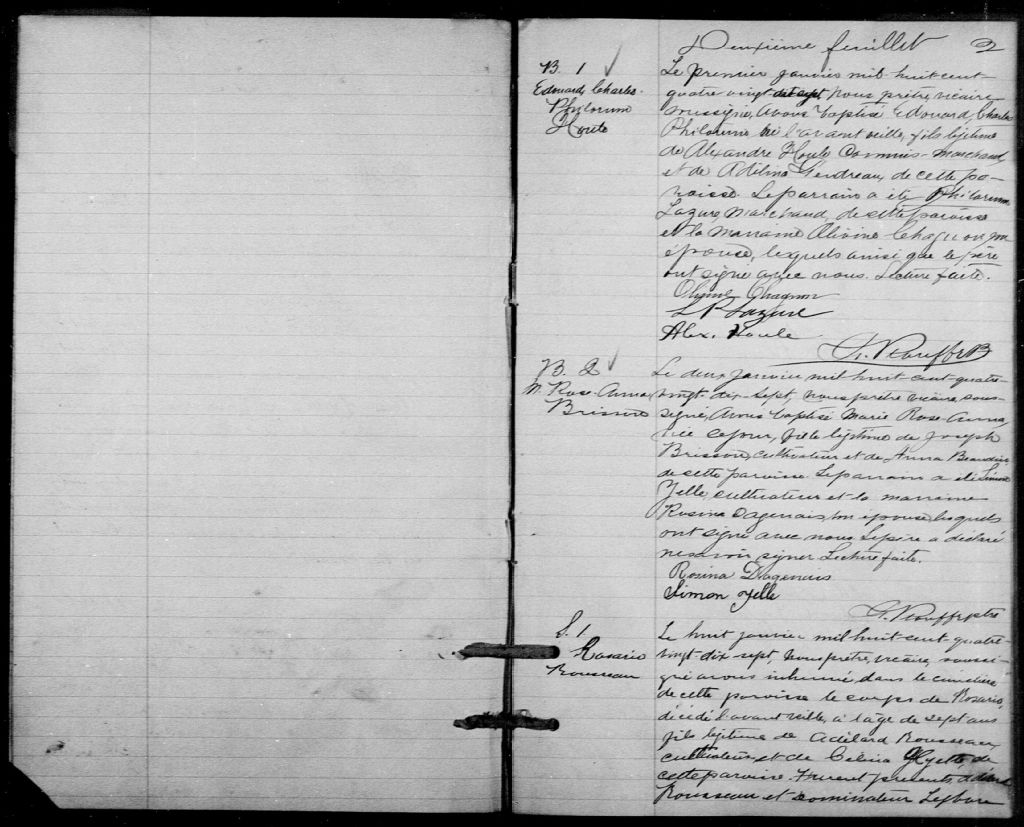 Deuxième feuillet 2
B. 1
Edouard, Charles
Philorum
Houle
Le premier janvier mil huit cent
quatre vingt dix sept nous prêtre, vicaire
soussigné, avons baptisé Edouard, Charles
Philorum, né l'avant veille, fils légitime
de Alexandre Houle Commis-Marchand
et de Adélina Gendreau, de cette pa-
roisse. Le parrain a été Philorum
Lazure, Marchand, de cette paroisse
et la marraine Olivine Chagnon son
épouse, lesquels ainsi que le père
ont signé avec nous. Lecture faite.
Chagnon
L P Lazure
Alex. Houle
B. 2
M. Rose-Anna
Brisson
Le deux janvier mil huit cent quatre-
vingt-dix-sept, nous prêtre vicaire, sous-
signé, avons baptisé Marie Rose-Anna,
née ce jour, fille légitime de Joseph
Brisson, cultivateur et de Anna Beaudin
de cette paroisse. Le parrain a été Simon
Yelle, cultivateur et la marraine
Rosina Dagenais, son épouse, lesquels
ont signé avec nous. Le père a déclaré
ne savoir signer. Lecture faite.
Rosina Dagenais
Simon Yelle
S. 1
Rosario
Rousseau
Le huit janvier mil huit-cent quatre-
vingt-dix-sept, nous prêtre, vicaire, soussi-
gné avons inhumé, dans le cimetière
de cette paroisse le corps de Rosario,
décédé l'avant veille, à l'âge de sept ans
fils légitime de Adélard Rousseau,
cultivateur, et de Célina de
cette paroisse. Furent présents, Adélard
Rousseau et Lefbvre